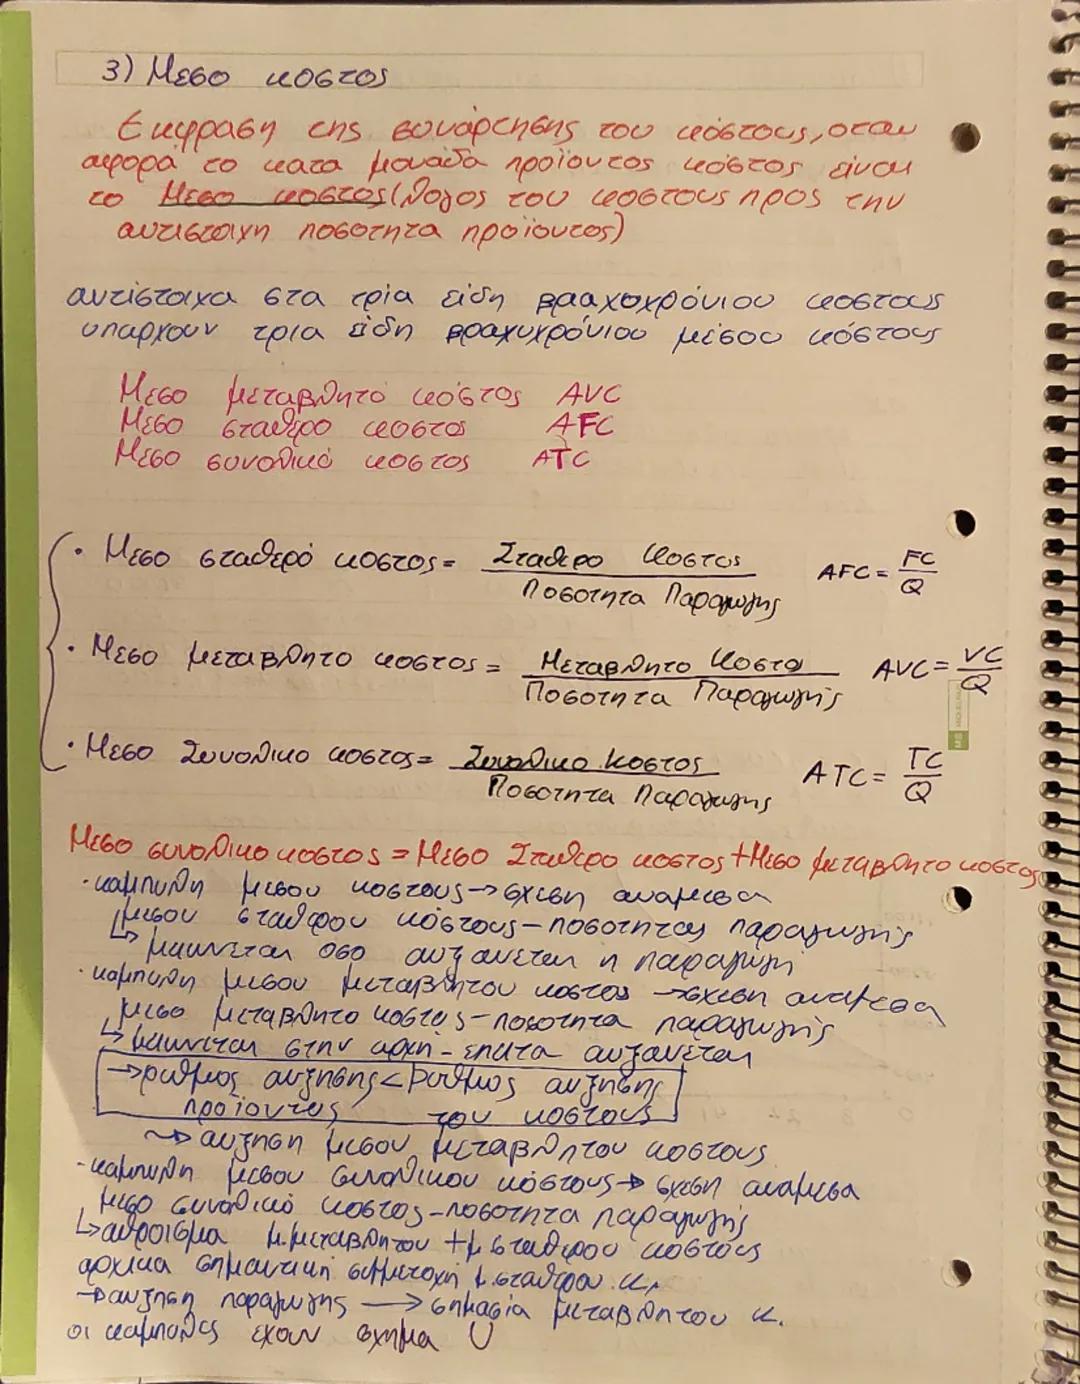 3) Μεσο κοστος
Εκφραση της συνάρτησης του κόστους, οταν
αφορά το κατα μονάδα προϊοντος κόστος είναι
το Μεσο κοστος (λογος του κοστους προς την
αντιστοιχη ποσοτητα προϊοντος)
αντίστοιχα στα τρία είδη βραχυχρόνιου κοστους
υπαρχουν τρια είδη βραχυχρόνιου μέσου κόστους
Μεσο μεταβλητό κόστος AVC
Μεσο σταθερο κοστος AFC
Μεσο συνολικό κοστος ATC
• Μεσο σταθερό κοστος = Σταθερο Κοστος / Ποσοτητα Παραγωγης AFC = FC / Q
• Μεσο μεταβλητο κοστος = Μεταβλητο Κοστο / Ποσοτητα Παραγωγής AVC = VC / Q
• Μεσο Συνολικο κοστος = Συνολικο Κοστος / Ποσοτητα Παραγωγης ATC = TC / Q
Μεσο συνολικο κοστος = Μεσο Σταθερο κοστος + Μεσο μεταβλητο κοστος
· καμπυλη μεσου κοστους → σχεση αναμεσα
μεσου σταθερου κόστους – ποσοτητας παραγωγής
↳ μειωνεται οσο αυξανεται η παραγωγη
· καμπυλη μεσου μεταβλητου κοστος → σχεση αναμεσα
μεσο μεταβλητο κοστος – ποσοτητα παραγωγής
↳ μειωνεται στην αρχή – επειτα αυξανεται
→ ρυθμος αυξησης < ρυθμος αυξησης
προϊοντος του κοστους
→ αυξηση μεσου μεταβλητου κοστους
- καμπυλη μεσου συνολικου κόστους → σχεση αναμεσα
μεσο συνολικό κοστος – ποσοτητα παραγωγής
↳ αθροισμα μ. μεταβλητου + μ σταθερου κοστους
αρχικα σημαντικη συμμετοχή μ. σταθερου κ.
→ αυξηση παραγωγης → σημασία μεταβλητου κ.
οι καμπυλες εχουν σχημα U